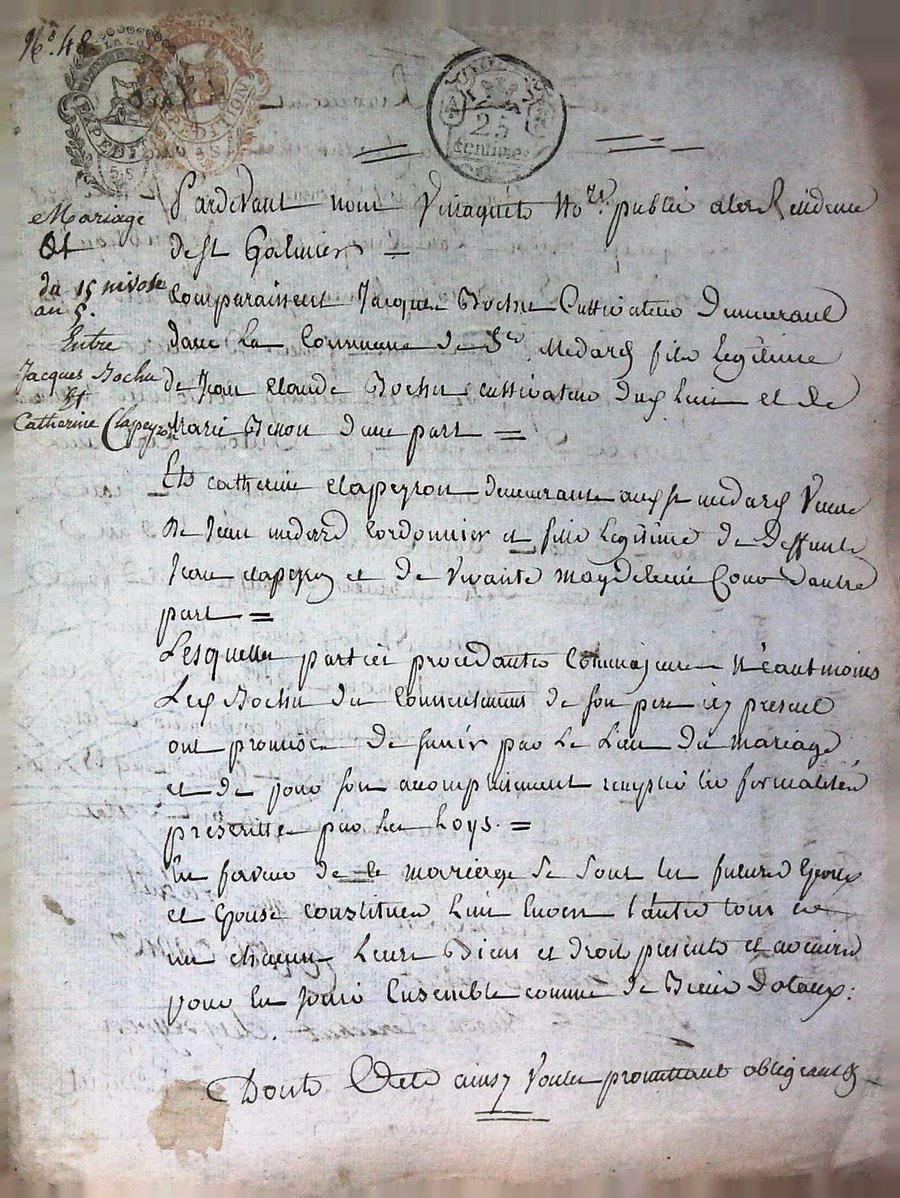 No. 48
25
centimes
Mariage
du 15 nivose
an 5.
Entre
Jacques Bochu
Et
Catherine Clapeyron
Pardevant nous notre. public a la Residence
de st Galmier
Comparaissent Jacques Bochu Cultivateur Demeurant
dans la Commune de St. Medard fils legitime
de Jean Claude Bochu cultivateur dud lieu et de
Marie d'une part =
Et catherine clapeyron demeurante aud st medard Veuve
de Jean medard Cordonnier et fille legitime de deffunt
Jean clapeyron et de vivante magdeleine d'autre
part =
Lesquelles parties procedantes Comme majeures Neantmoins
Led Bochu du Consentement de son pere icy present
ont promis de s'unir par le Lien du mariage
et de pour son acomplissement remplir les formalités
prescrittes par les Loys. =
En faveur de ce mariage se sont les futurs Epoux
et Epouse constitués L'un Envers l'autre tous et
un chacuns Leurs Biens et droits presents et avenir
pour en jouir Ensemble comme de Biens Dotaux:
Dont Acte ainsy Voulu promettant obligeant &